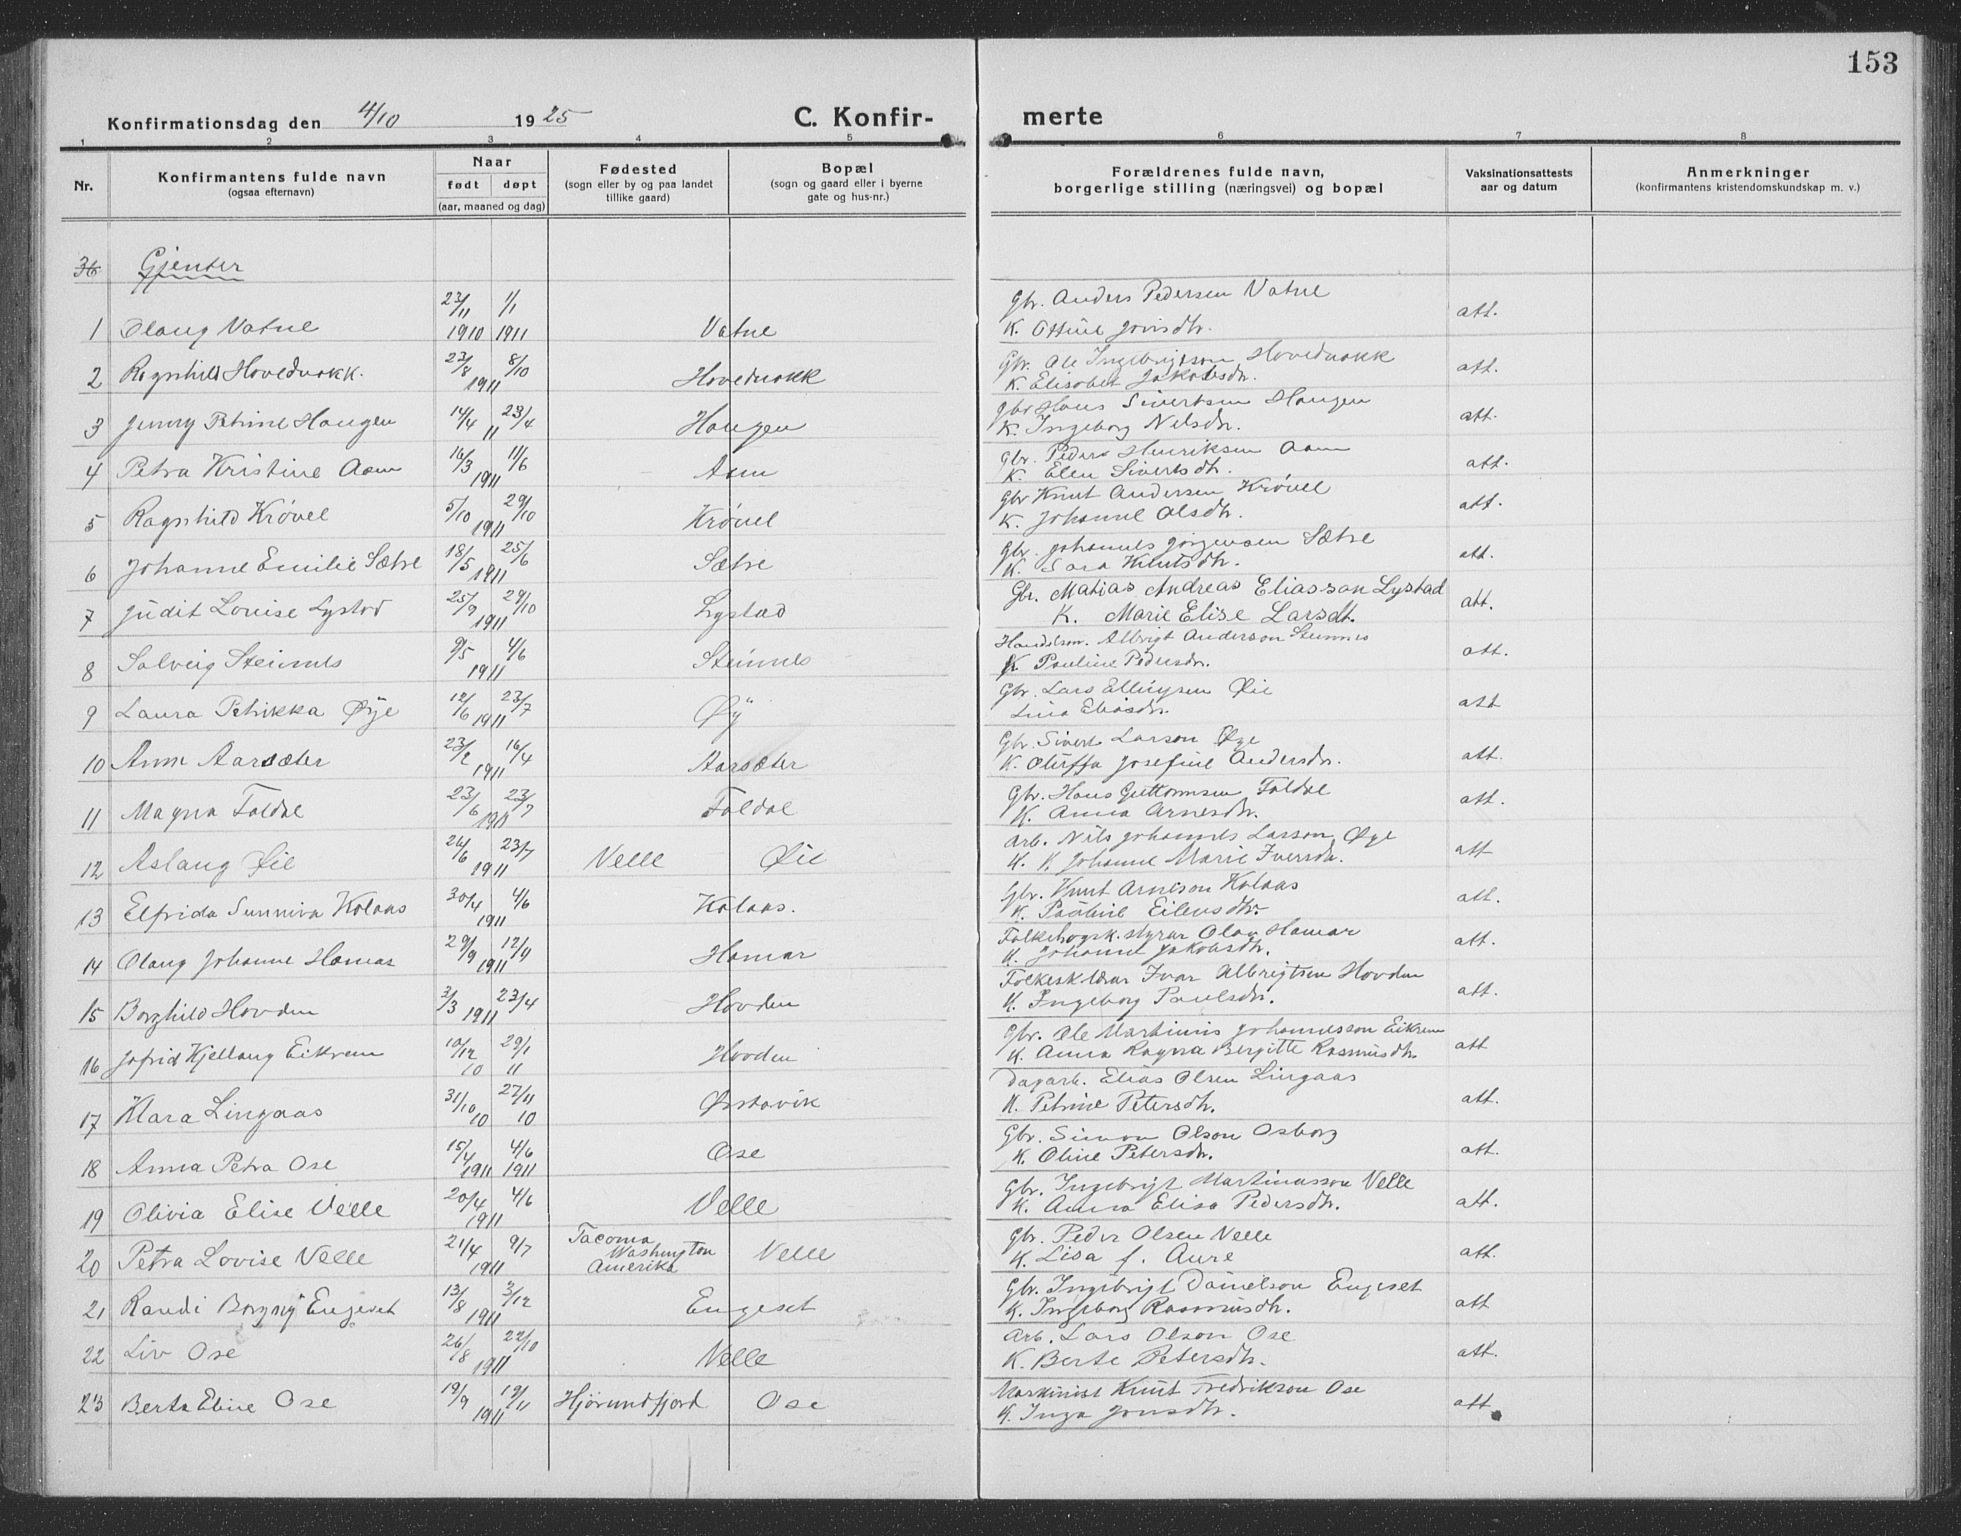 153
Konfirmationsdag den 4/10 1925 C. Konfir- merte
1 2 3 4 5 6 7 8
Nr. Konfirmantens fulde navn (ogsaa efternavn) Naar født døpt (aar, maaned og dag) Fødested (sogn eller by og paa landet tillike gaard) Bopæl (sogn og gaard eller i byerne gate og hus-nr.) Forældrenes fulde navn, borgerlige stilling (næringsvei) og bopæl Vaksinationsattests aar og datum Anmerkninger (konfirmantens kristendomskundskap m. v.)
36 Gjenter
1 Olaug Vatne 23/11 1910 1/1 1911 Vatne Gbr. Anders Pedersen Vatne att.
K. Ottine Jonsdtr.
2 Ragnhild Hovedvakk. 23/8 8/10 1911 Hovedvakk Gbr. Ole Ingebrigtson Hovedvakk att.
K. Elisabet Jakobsdtr.
3 Jenny Petrine Haugen 14/4 23/4 11 Haugen Gbr Hans Sivertsen Haugen att.
K. Ingeborg Nilsdtr.
4 Petra Kristine Aam 16/3 11/6 1911 Aam Gbr. Peder Henriksen Aam att.
K. Elen Sivertsdtr.
5 Ragnhild Krøvel 5/10 29/10 1911 Krøvel Gbr Knut Andersen Krøvel att.
K. Johanne Olsdtr.
6 Johanne Emilie Sætre 18/5 25/6 1911 Sætre Gbr. Johannes Jørgensen Sætre att.
K. Sara Knutsdtr.
7 Judit Louise Lystad 25/9 29/10 1911 Lystad Gbr. Matias Andreas Elias-son Lystad att.
K. Marie Elise Larsdt.
8 Solveig Steinnes 9/5 4/6 1911 Steinnes Handelsm. Albrigt Anderson Steinnes att.
K Pauline Pedersdtr.
9 Laura Petrikka Øye 12/6 23/7 1911 Øy Gbr. Lars Ellingsen Øie att
Lina Eliasdtr.
10 Anna Aarsæter 23/2 16/4 1911 Aarsæter Gbr. Sivert Larson Øye att.
K. Oluffa Josefine Andersdtr.
11 Magna Foldal 23/6 23/7 1911 Foldal Gbr. Hans Guttormsen Foldal att.
K. Anna Arnesdtr.
12 Aslaug Øie 26/6 23/7 1911 Velle Øie Arb. Nils Johannes Larson Øye att
K. K. Johanne Marie Iversdtr.
13 Elfrida Sunniva Kolaas 30/4 4/6 1911 Kolaas. Gbr. Knut Arneson Kolaas att.
K. Pauline Eilensdtr.
14 Olaug Johanne Hamar 29/9 12/9 1911 Hamar Folkehøgsk. styrar Olav Hamar att.
K. Johanne Jakobsdtr.
15 Borghild Hovden 3/3 23/4 1911 Hovden Folkesk lærar Ivar Albrigtsen Hovden att.
K. Ingeborg Paulsdtr.
16 Jofrid Kjellaug Eikrem 10/12 10 29/1 11 Hovden Gbr. Ole Martinus Johannesson Eikrem att
K. Anna Ragna Bergitte Rasmusdtr.
17 Klara Lingaas 31/10 10 27/11 10 Ørstavik Dagarb. Elias Olsen Lingaas att.
K. Petrine Petersdtr.
18 Anna Petra Ose 15/4 1911 4/6 1911 Ose Gbr. Simon Olson Osborg att.
K. Oline Petersdtr.
19 Olivia Elise Velle 20/4 4/6 1911 Velle Gbr. Ingebrigt Martinusson Velle att.
K. Anna Elisa Pedersdtr.
20 Petra Lovise Velle 21/4 9/7 1911 Tacoma Washington Amerika Velle Gbr. Peder Olsen Velle att.
K. Lisa f. Aure
21 Randi Borgny Engeset 13/8 3/12 1911 Engeset Gbr. Ingebrigt Danielson Engeset att
K. Ingeborg Rasmusdtr.
22 Liv Ose 26/8 22/10 1911 Velle Arb. Lars Olson Ose att.
K. Berte Petersdtr.
23 Berta Eline Ose 19/9 19/11 1911 Hjørundfjord Ose Maskinist Knut Fredrikson Ose att
K. Inga Jonsdtr.